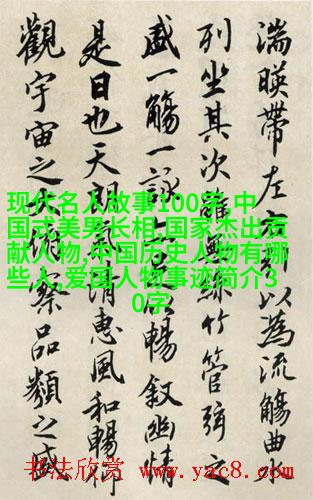 湍暎帶左右引以為流觴曲
列坐其次雖無絲竹管弦之
盛一觴一詠以暢敘幽情
是日也天朗氣清惠風和暢仰
觀宇宙之大俯察品類之盛
现代名人故事100字,中
国式美男长相,国家杰出贡
献人物,中国历史人物有哪
些人,爱国人物事迹简介3
0字
书法欣赏 www.yac8.com